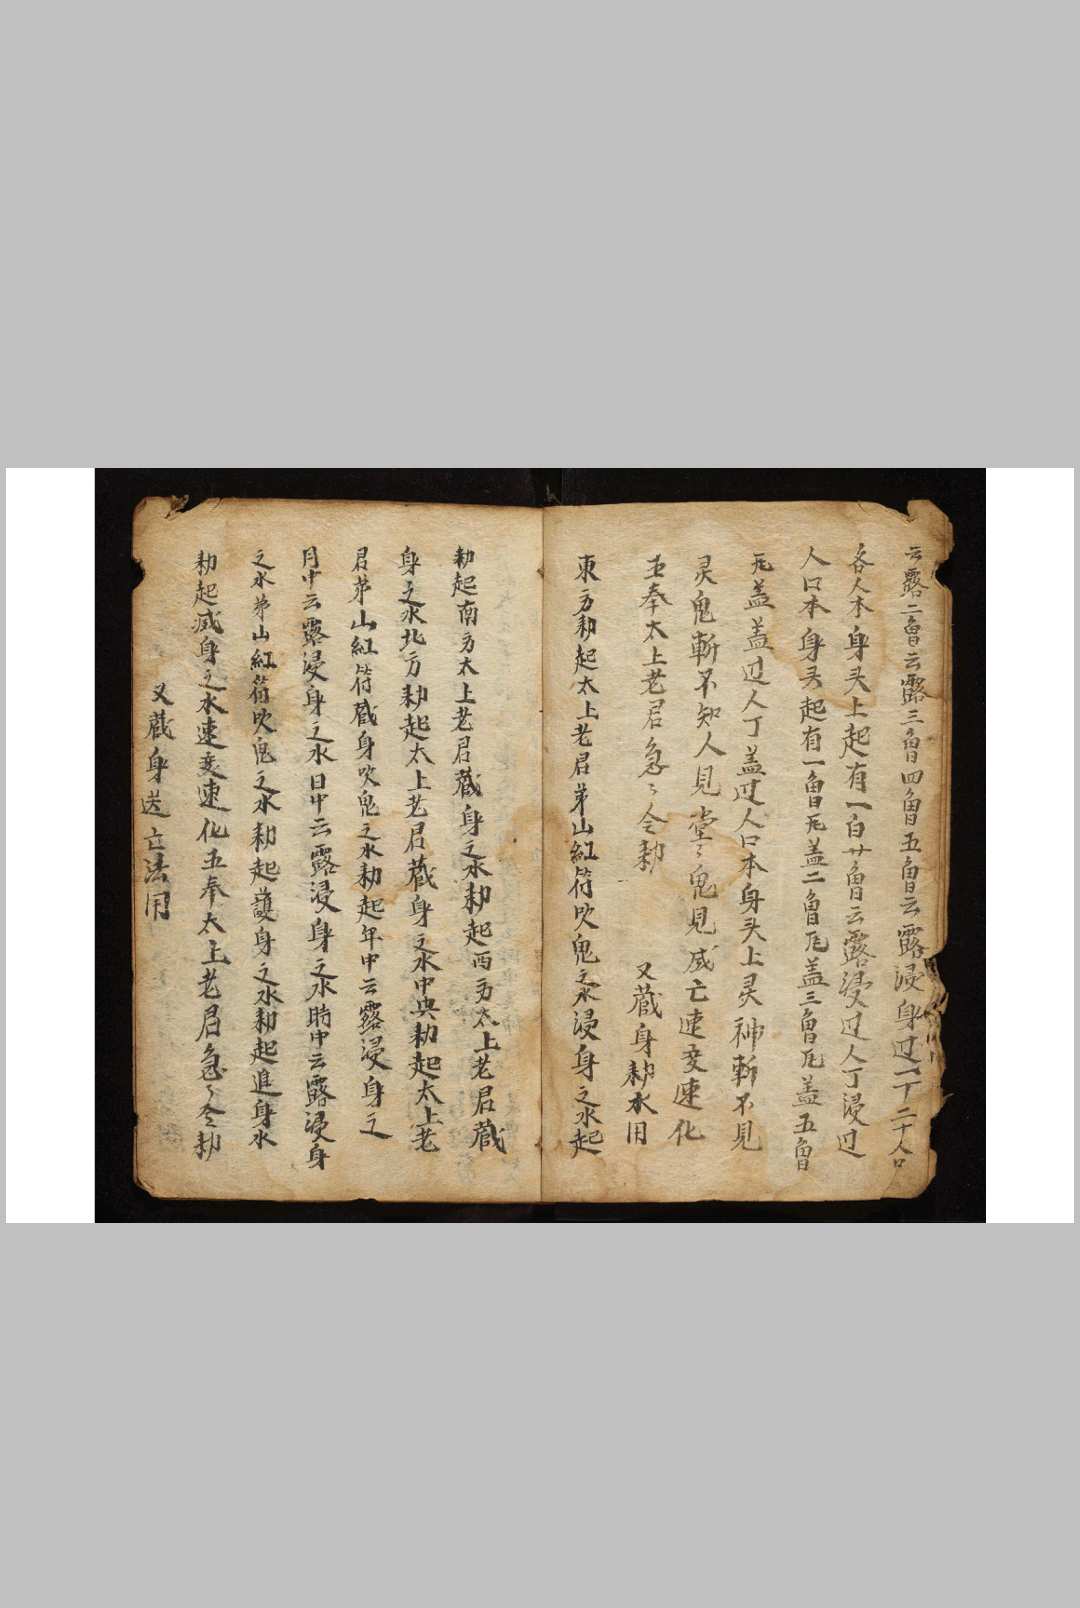 云露二魯云露三魯四魯五魯云露浸身过一丁二十人口
各人本身头上起有一百廿魯云露浸过人丁浸过
人口本身头起有一魯瓦盖二魯瓦盖三魯瓦盖五魯
瓦盖盖过人丁盖过人口本身头上灵神斬不見
灵鬼斬不知人見堂〻鬼見威亡速变速化
奉太上老君急〻令勅
又藏身勅水用
東方勅起太上老君茅山紅符吹鬼之水浸身之水起
勅起南方太上老君藏身之水勅起西方太上老君藏
身之水北方勅起太上老君藏身之水中央勅起太上老
君茅山紅符藏身吹鬼之水勅起年中云露浸身之
月中云露浸身之水日中云露浸身之水時中云露浸身
之水茅山紅符吹鬼之水勅起護身之水勅起進身水
勅起威身之水速变速化五奉太上老君急〻令勅
又藏身送亡法用